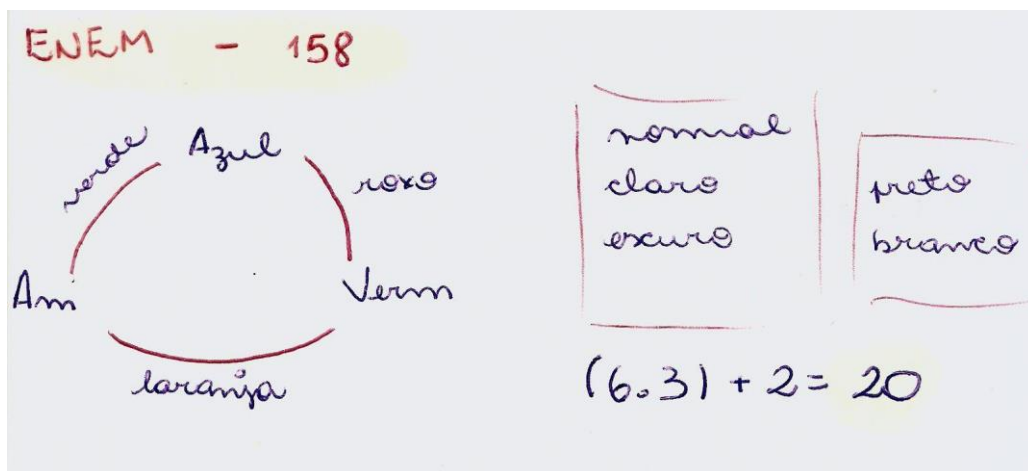 ENEM - 158
verde
Azul
roxo
Am
Verm
laranja
normal
claro
escuro
preto
branco
(6.3) + 2 = 20